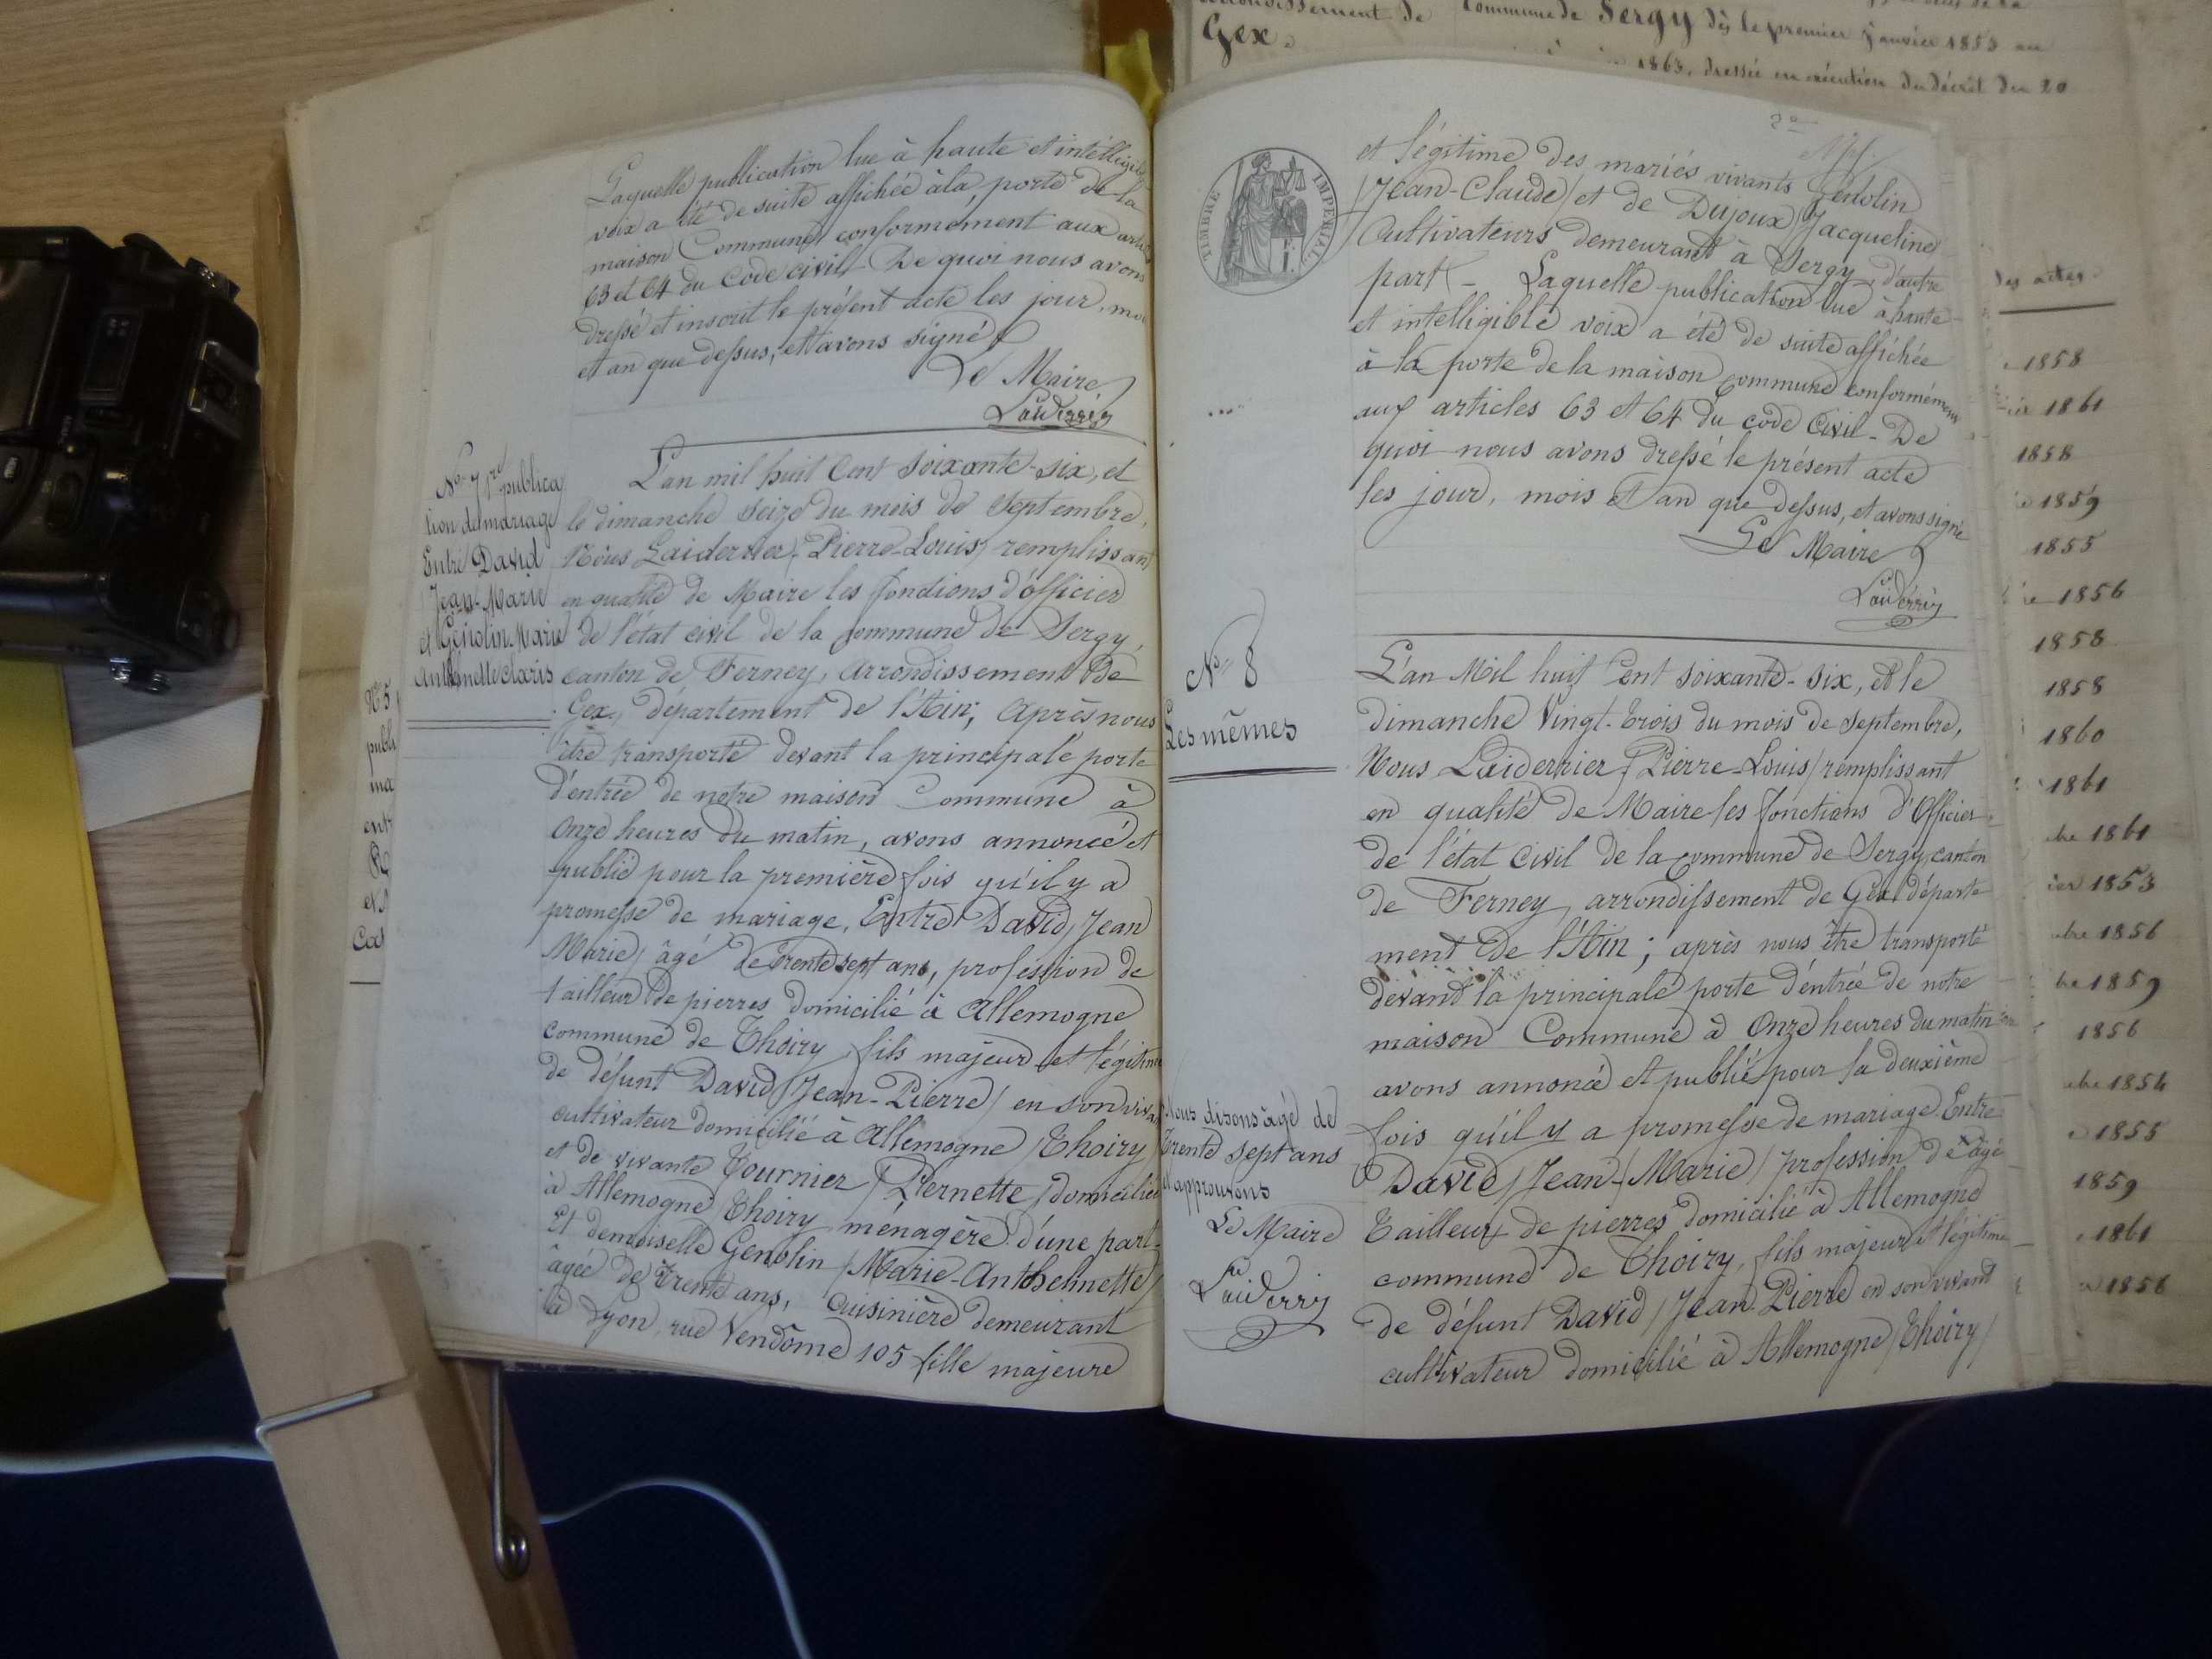 Laquelle publication lue à haute et intelligible
voix a été de suite affichée à la porte de la
maison Commune conformément aux
63 et 64 du Code civil. De quoi nous avons
dressé et inscrit le présent acte les jour,
et an que dessus, et avons signé
Le Maire
No 7 1re publica
tion de mariage
Entre David
Jean-Marie
et Genolin Marie
L'an mil huit Cent soixante-six, et
le dimanche seize du mois de Septembre,
Nous Laiderrier / Pierre-Louis / remplissant
en qualité de Maire les fonctions d'officier
de l'état civil de la commune de Sergy,
canton de Ferney, arrondissement de
Gex, département de l'Ain; Après nous
être transporté devant la principale porte
d'entrée de notre maison Commune à
onze heures du matin, avons annoncé et
publié pour la première fois qu'il y a
promesse de mariage, Entre David / Jean
Marie / âgé de trente sept ans, profession de
tailleur de pierres domicilié à Allemogne
commune de Thoiry, fils majeur et légitime
de défunt David / Jean-Pierre / en son
cultivateur domicilié à Allemogne / Thoiry /
et de vivante Tournier / Pernette / domiciliée
à Allemogne / Thoiry ménagère d'une part
Et demoiselle Genolin / Marie-Anthelmette /
âgée de Trente ans, Cuisinière demeurant
à Lyon, rue Vendôme 105 fille majeure
No 5
publi
ma
ent
Gex.
Commune de Sergy dès le premier Janvier 1853 au
1863, dressée en exécution du décret du 20
TIMBRE IMPERIAL
et légitime des mariés vivants Genolin
/ Jean-Claude / et de Dujoux / Jacqueline
Cultivateurs demeurant à Sergy, d'autre
part - Laquelle publication lue à haute
et intelligible voix a été de suite affichée
à la porte de la maison commune conformément
aux articles 63 et 64 du code Civil - De
quoi nous avons dressé le présent acte
les jour, mois et an que dessus, et avons signé
Le Maire
No 8
Les mêmes
L'an Mil huit Cent soixante-six, et le
dimanche Vingt-trois du mois de Septembre,
Nous Laiderrier / Pierre-Louis / remplissant
en qualité de Maire les fonctions d'Officier
de l'état Civil de la commune de Sergy canton
de Ferney, arrondissement de Gex départe
ment de l'Ain; après nous être transporté
devant la principale porte d'entrée de notre
maison Commune à Onze heures du matin
avons annoncé et publié pour la deuxième
fois qu'il y a promesse de mariage Entre
David / Jean-Marie / profession de âgé
Tailleur de pierres domicilié à Allemogne
commune de Thoiry, fils majeur et légitime
de défunt David / Jean-Pierre en son vivant
cultivateur domicilié à Allemogne / Thoiry /
Nous disons âgé de
trente sept ans
et approuvons
Le Maire
des actes
1858
1861
1858
1859
1855
1856
1858
1858
1860
1861
1861
1853
1856
1859
1856
1854
1855
1859
1861
1856